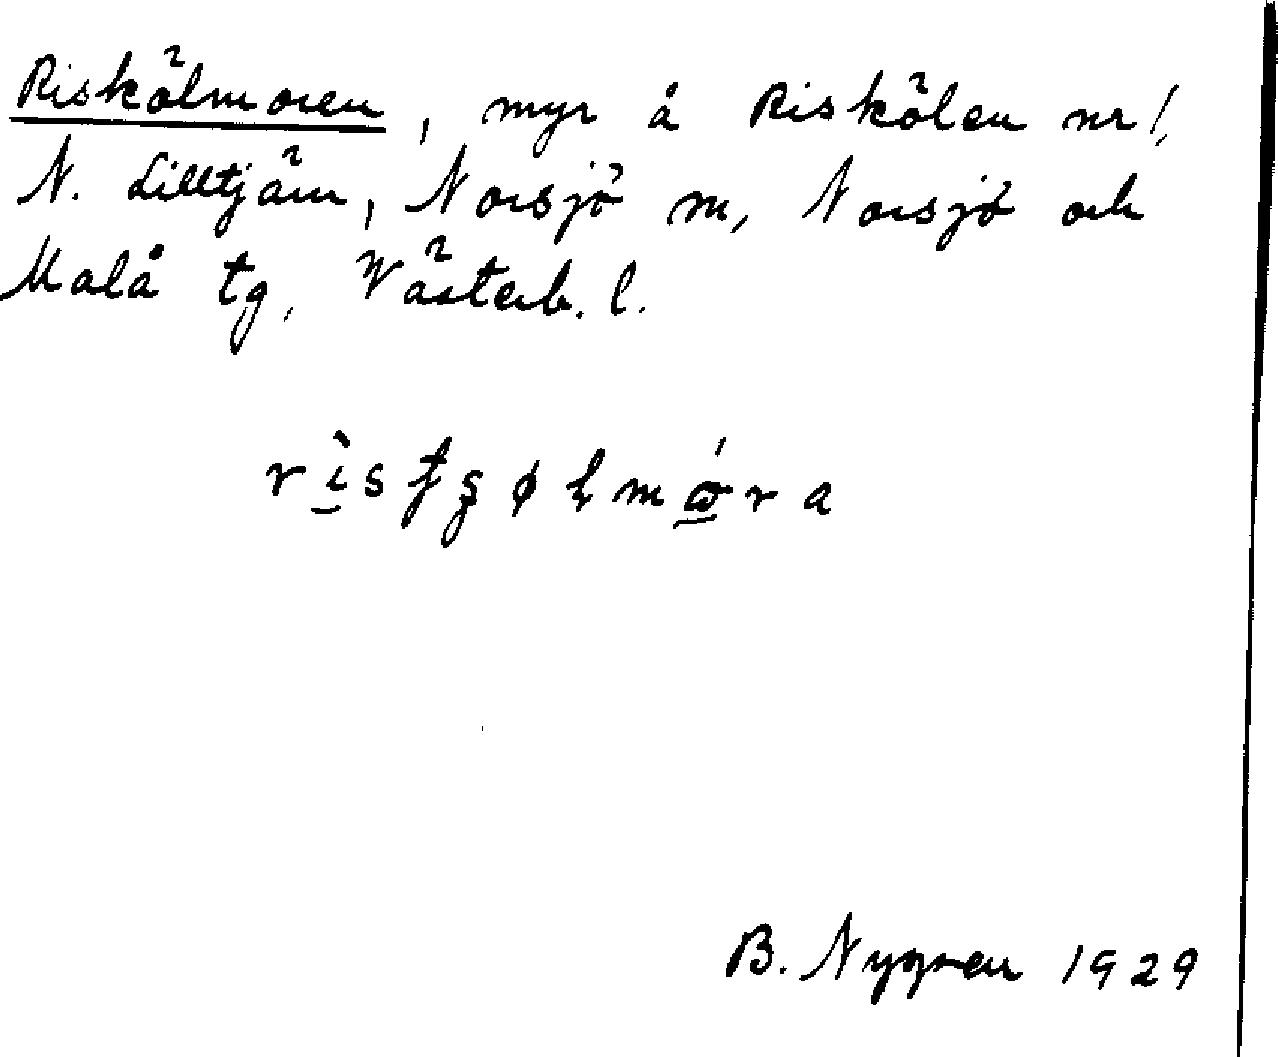 Riskölmoren, myr å Riskölen nr 1,
N. Lilltjärn, Norsjö sn, Norsjö och
Malå tg, Västerb. l.
B. Nygren 1929